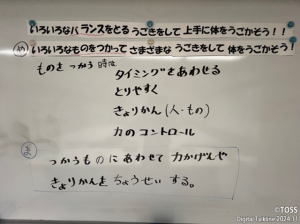 いろいろなバランスをとる うごきをして 上手に体をうごかそう！！
め いろいろなものをつかって さまざまな うごきをして 体をうごかそう！
ものを つかう 時は
タイミングをあわせる
とりやすく
きょりかん（人・もの）
力の コントロール
ま
つかうものに あわせて 力かげんや
きょりかんを ちょうせい する。
©TOSS
Digital Talkline 2024.11